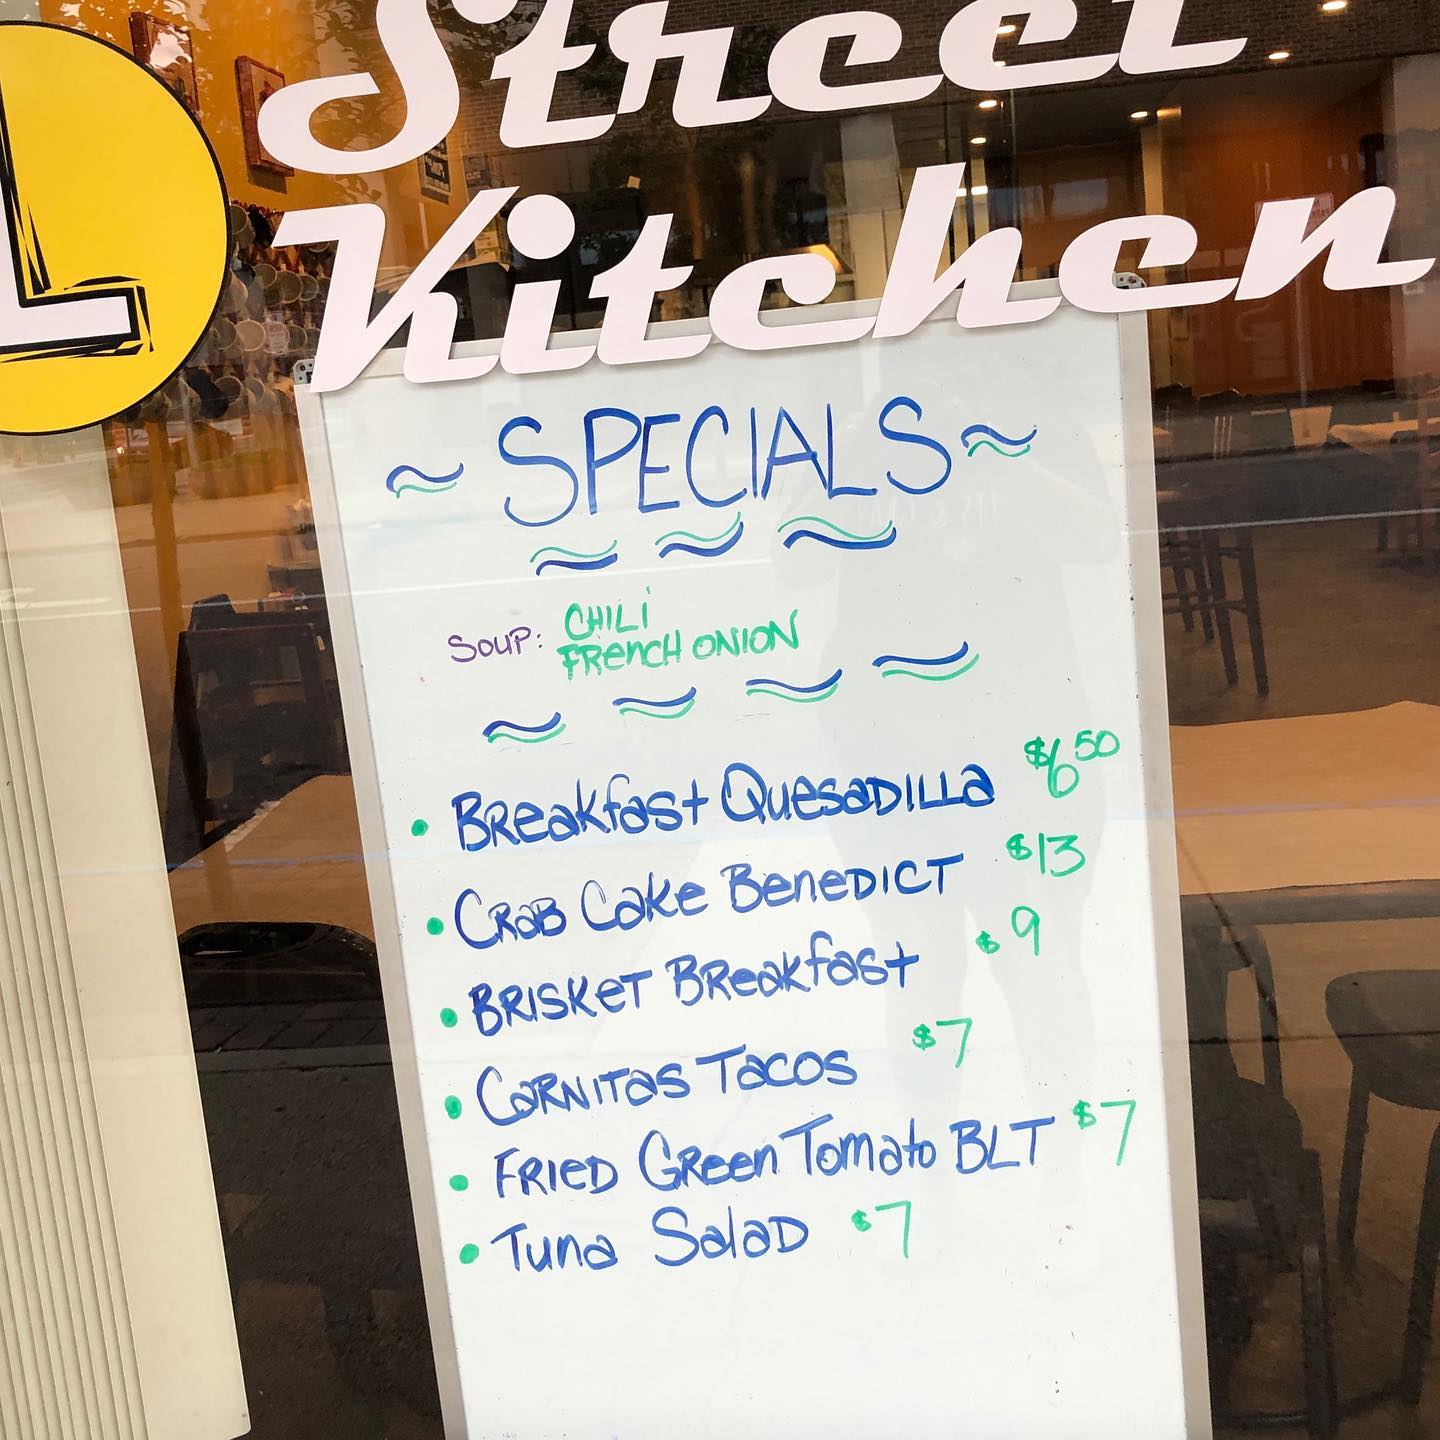 L
Street
Kitchen
~ SPECIALS ~
SOUP: CHILI
FRENCH ONION
• Breakfast Quesadilla $6.50
• Crab Cake Benedict $13
• Brisket Breakfast $9
• Carnitas Tacos $7
• Fried Green Tomato BLT $7
• Tuna Salad $7